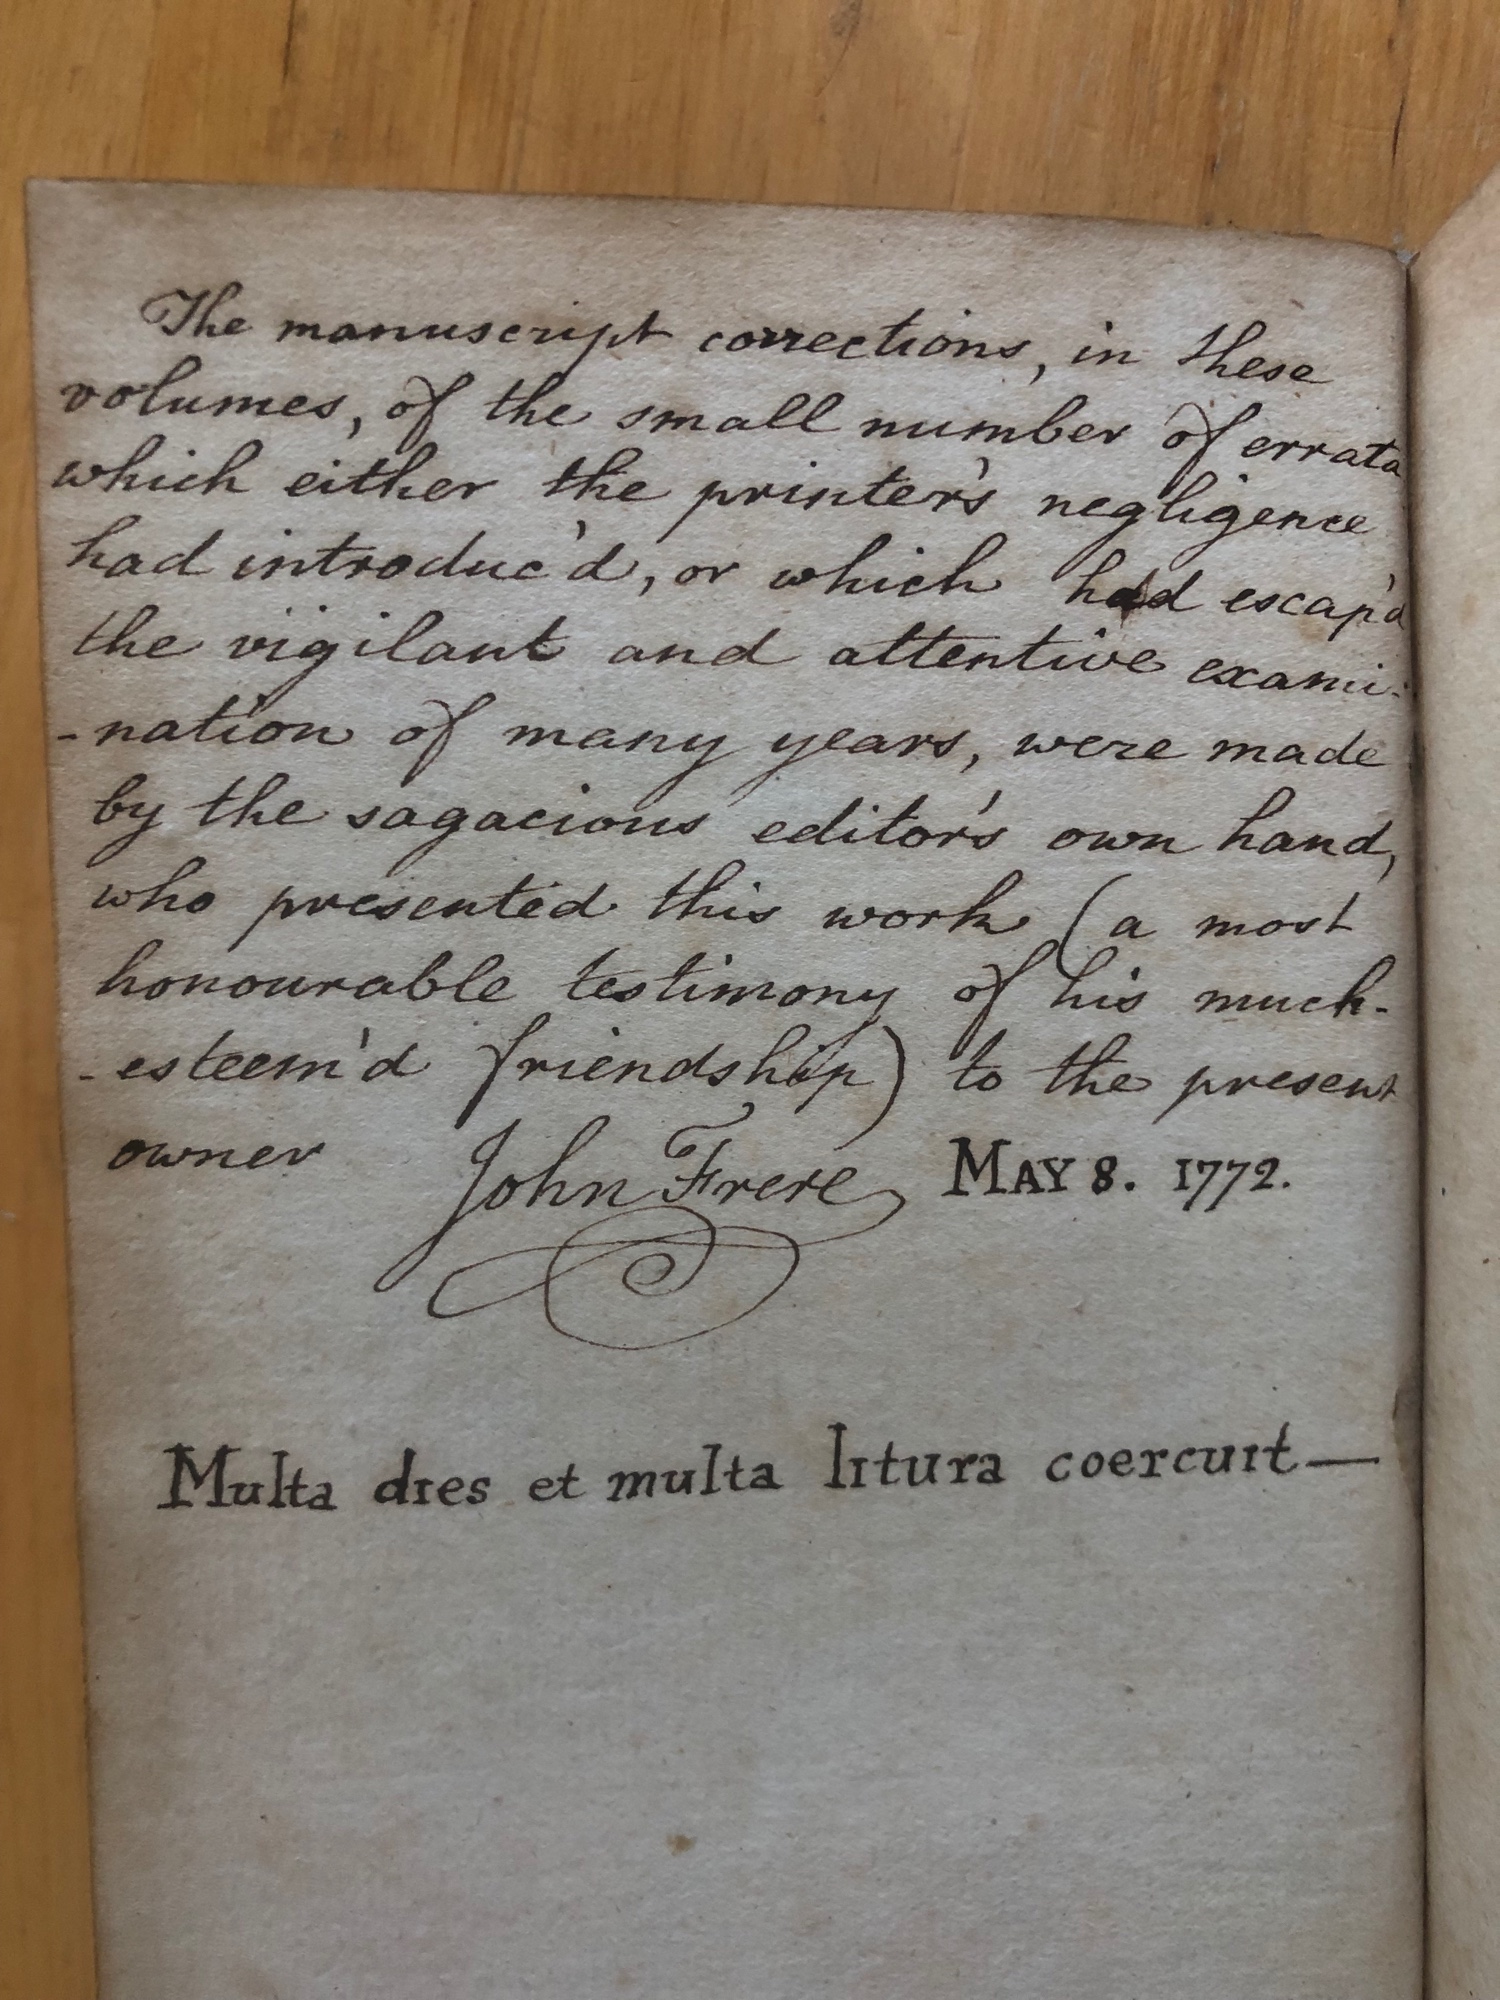 The manuscript corrections, in these
volumes, of the small number of errata
which either the printer's negligence
had introduc'd, or which had escap'd
the vigilant and attentive exami-
-nation of many years, were made
by the sagacious editor's own hand,
who presented this work (a most
honourable testimony of his much-
-esteem'd friendship) to the present
owner John Frere MAY 8. 1772.
Multa dies et multa litura coercuit—